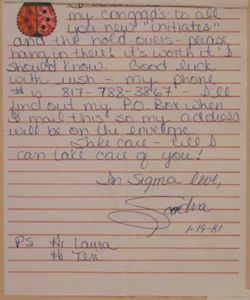 my congrads to all
you new "initiates"
and the old overs - please
hang in there! it's worth it! I
should know. Good luck
with rush - my phone
# is 817-788-3867 - I'll
find out my P.O. Box when
I mail this so my address
will be on the envelope.
Take care - till I
can take care of you!
In Sigma love,
Sandra
1-19-81
PS Hi Laura
Hi Teri